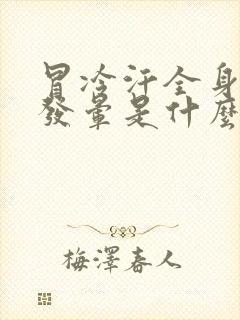 冒冷汗全身
發暈是什麼
梅澤春人